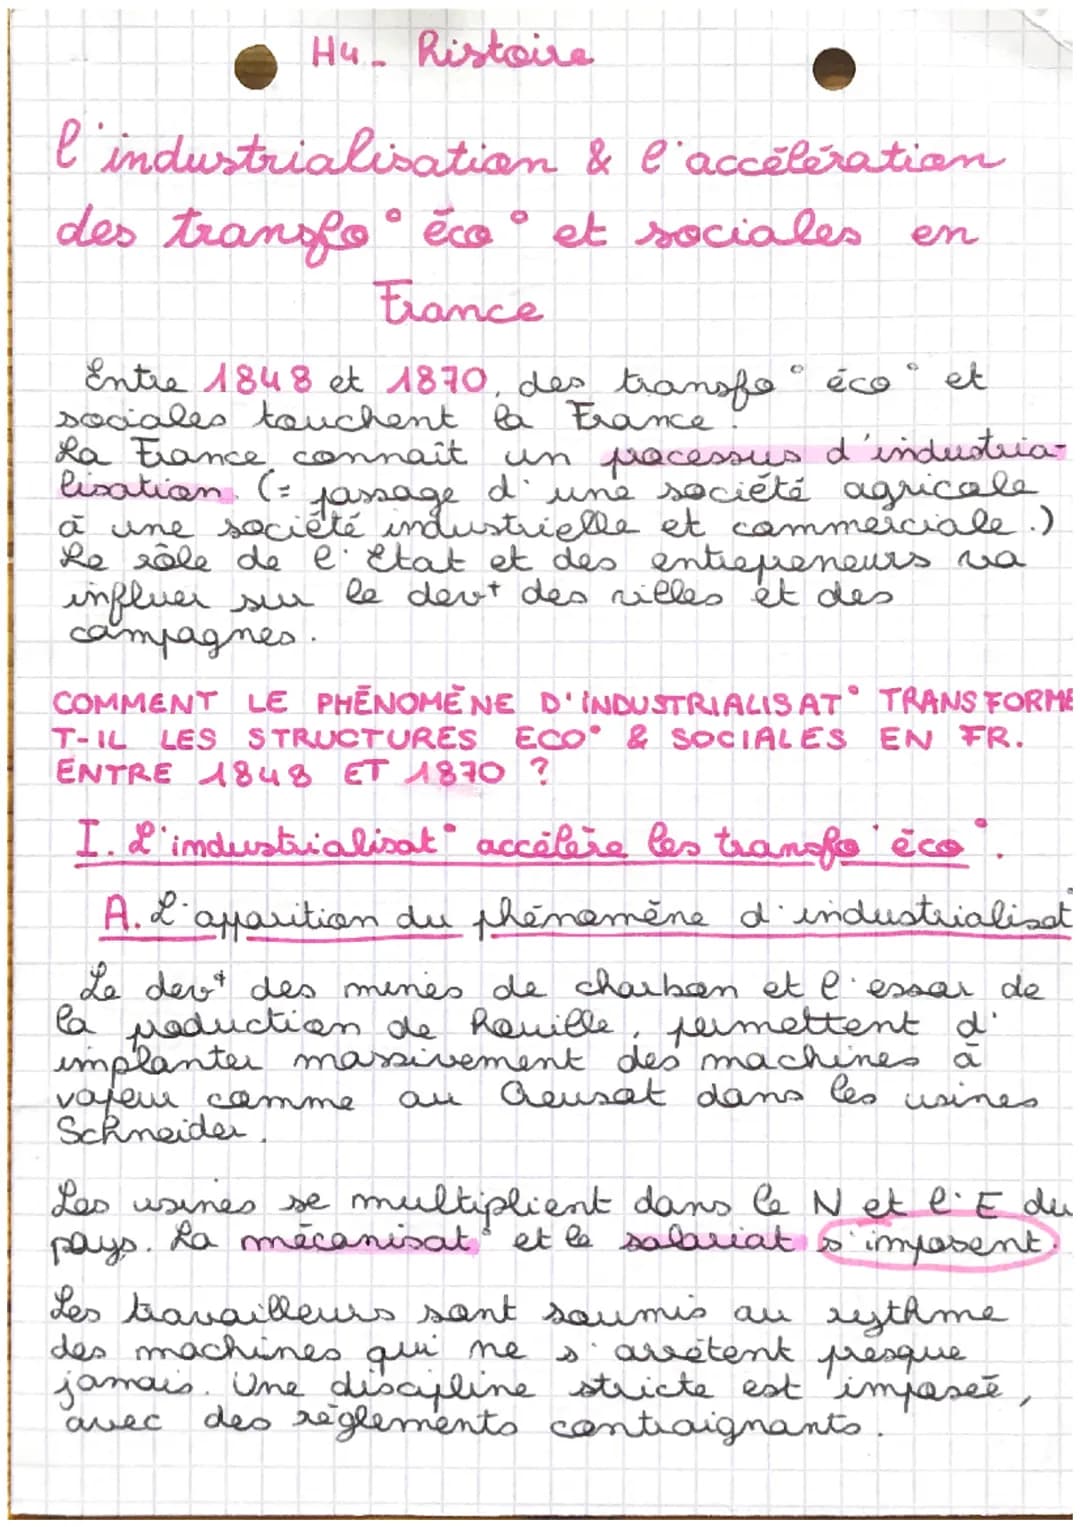 H4 - Histoire
l'industrialisation & l'accélération
des transfo° éco° et sociales en
France
Entre 1848 et 1870, des transfo° éco° et
sociales touchent la France.
La France connaît un processus d'industria-
lisation. (= passage d'une société agricole
à une société industrielle et commerciale.)
Le rôle de l'Etat et des entrepreneurs va
influer sur le devt des villes et des
campagnes.
COMMENT LE PHÉNOMÈNE D'INDUSTRIALISAT° TRANSFORME
T-IL LES STRUCTURES ECO° & SOCIALES EN FR.
ENTRE 1848 ET 1870 ?
I. L'industrialisat° accélère les transfo° éco°.
A. L'apparition du phénomène d'industrialisat°
Le devt des mines de charbon et l'essor de
la production de houille, permettent d'
implanter massivement des machines à
vapeur comme au Creusot dans les usines
Schneider.
Les usines se multiplient dans le N et l'E du
pays. La mécanisat° et le salariat s'imposent.
Les travailleurs sont soumis au rythme
des machines qui ne s'arrêtent presque
jamais. Une discipline stricte est imposée,
avec des règlements contraignants.